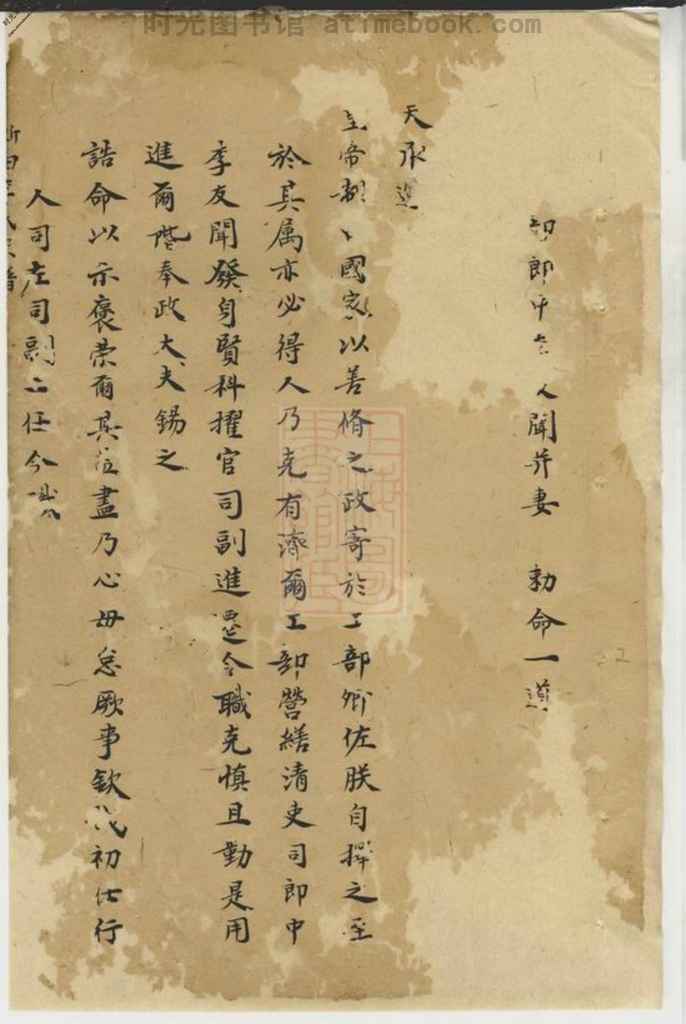 时光图书馆 atimebook.com
部郎中李友聞并妻 勅命一道
天承運
皇帝制 國家以善脩之政寄於工部卿佐朕自擇之至
於其属亦必得人乃克有濟爾工部營繕清吏司郎中
李友聞發身賢科擢官司副進遷令職克慎且勤是用
進爾階奉政大夫錫之
誥命以示褒荣爾其益盡乃心毋怠厥事欽哉初仕行
人司左司副二任今